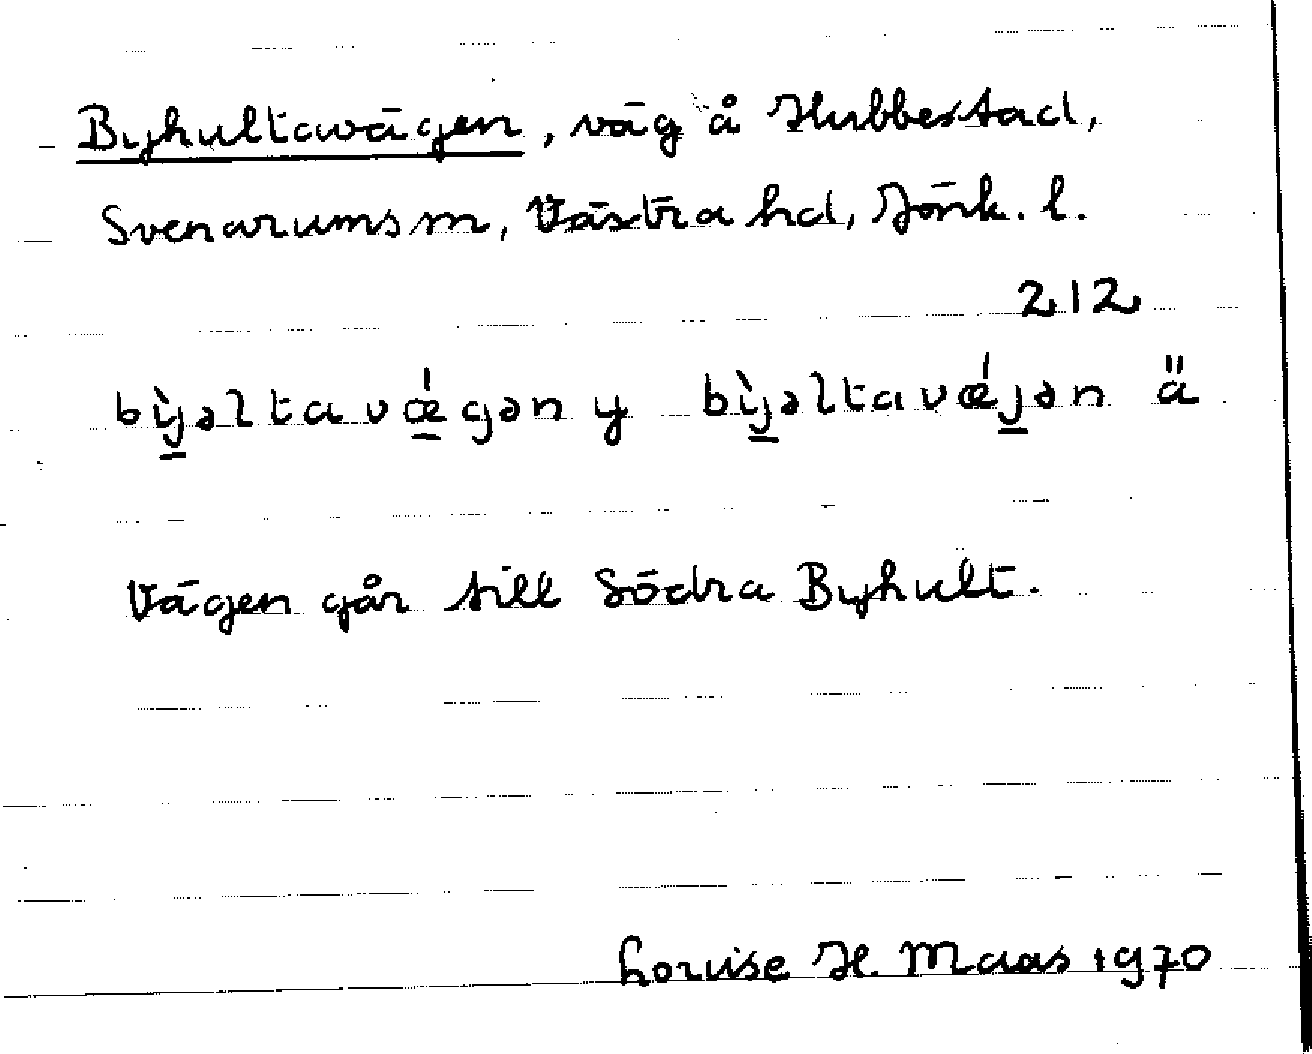 Byhultavägen, väg å Hubbestad,
Svenarums sn, Västra hd, Jönk. l.
212
bỳəltavǽgən y bỳəltavǽjən ä
Vägen går till Södra Byhult.
Louise H Maas 1970